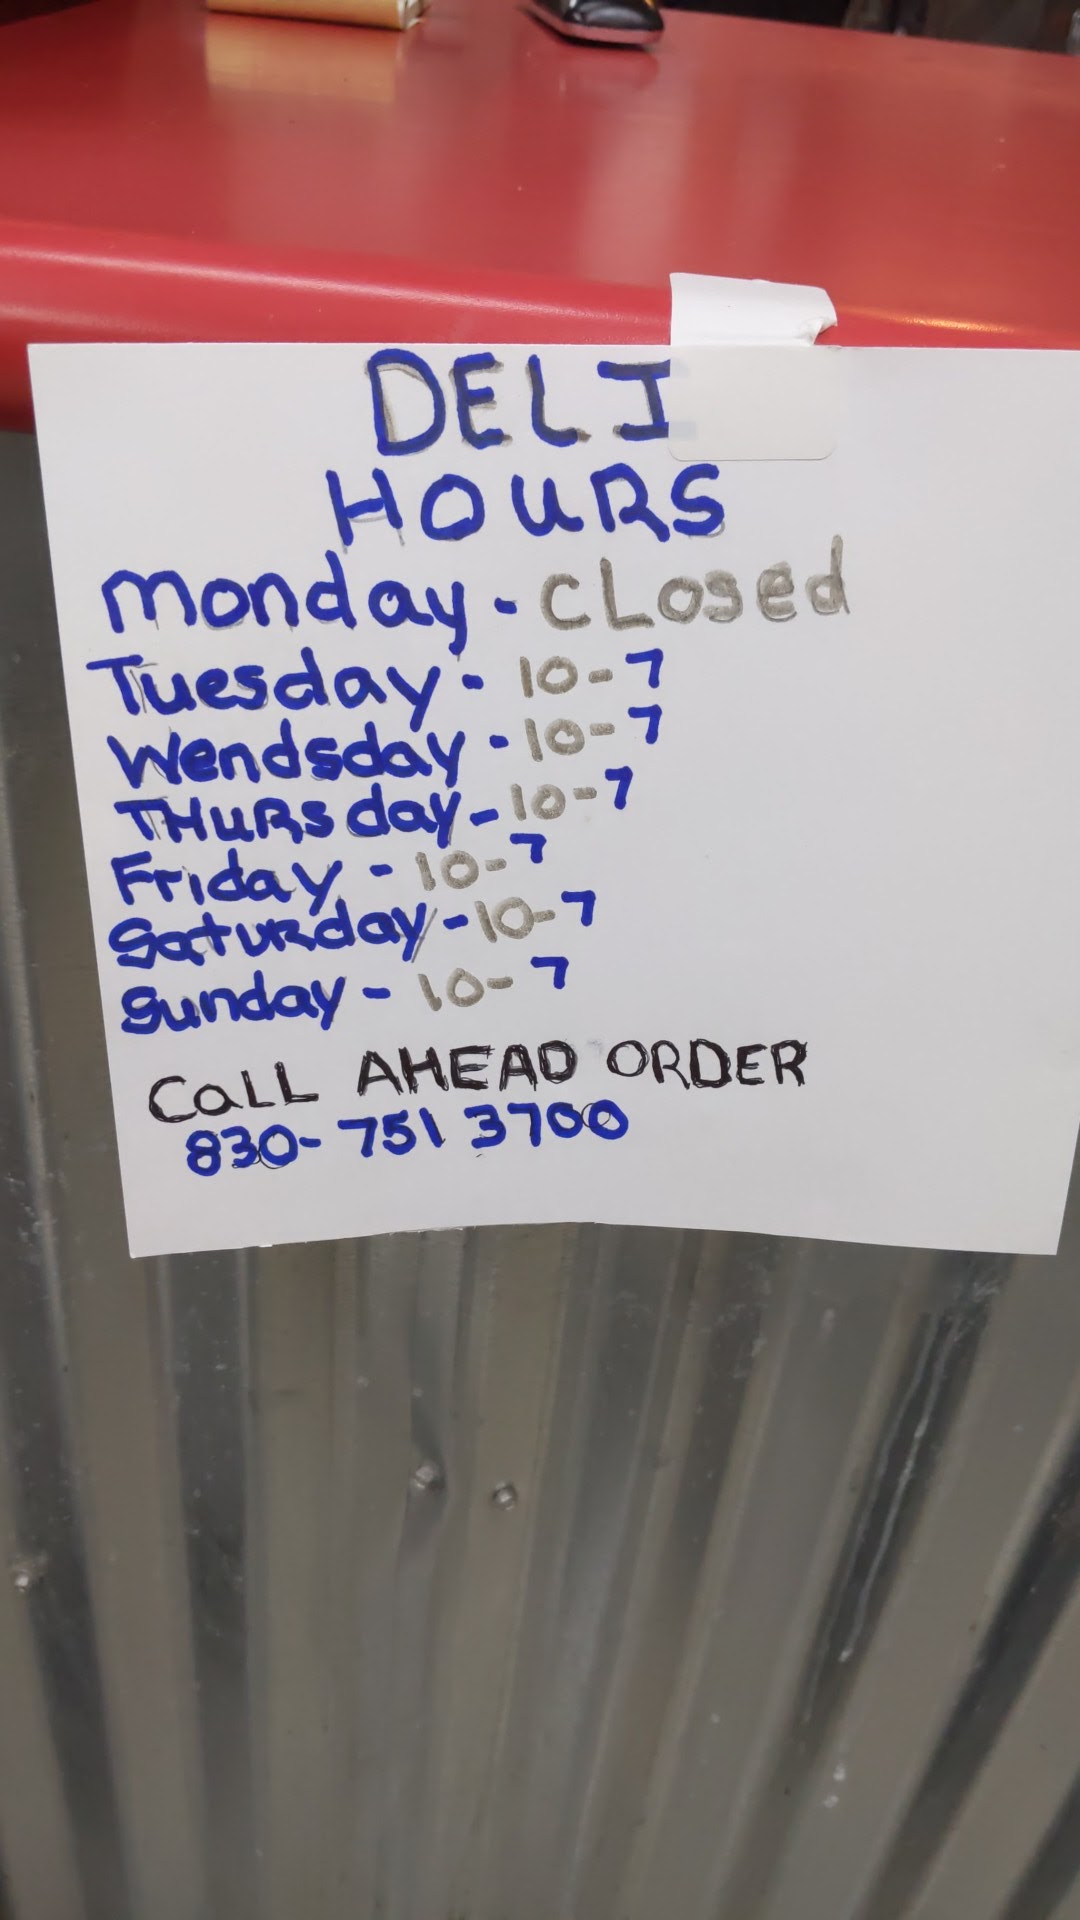 DELI
HOURS
monday - CLosed
Tuesday - 10-7
Wendsday - 10-7
THURSday - 10-7
Friday - 10-7
Saturday - 10-7
Sunday - 10-7
CaLL AHEAD ORDER
830-751 3700